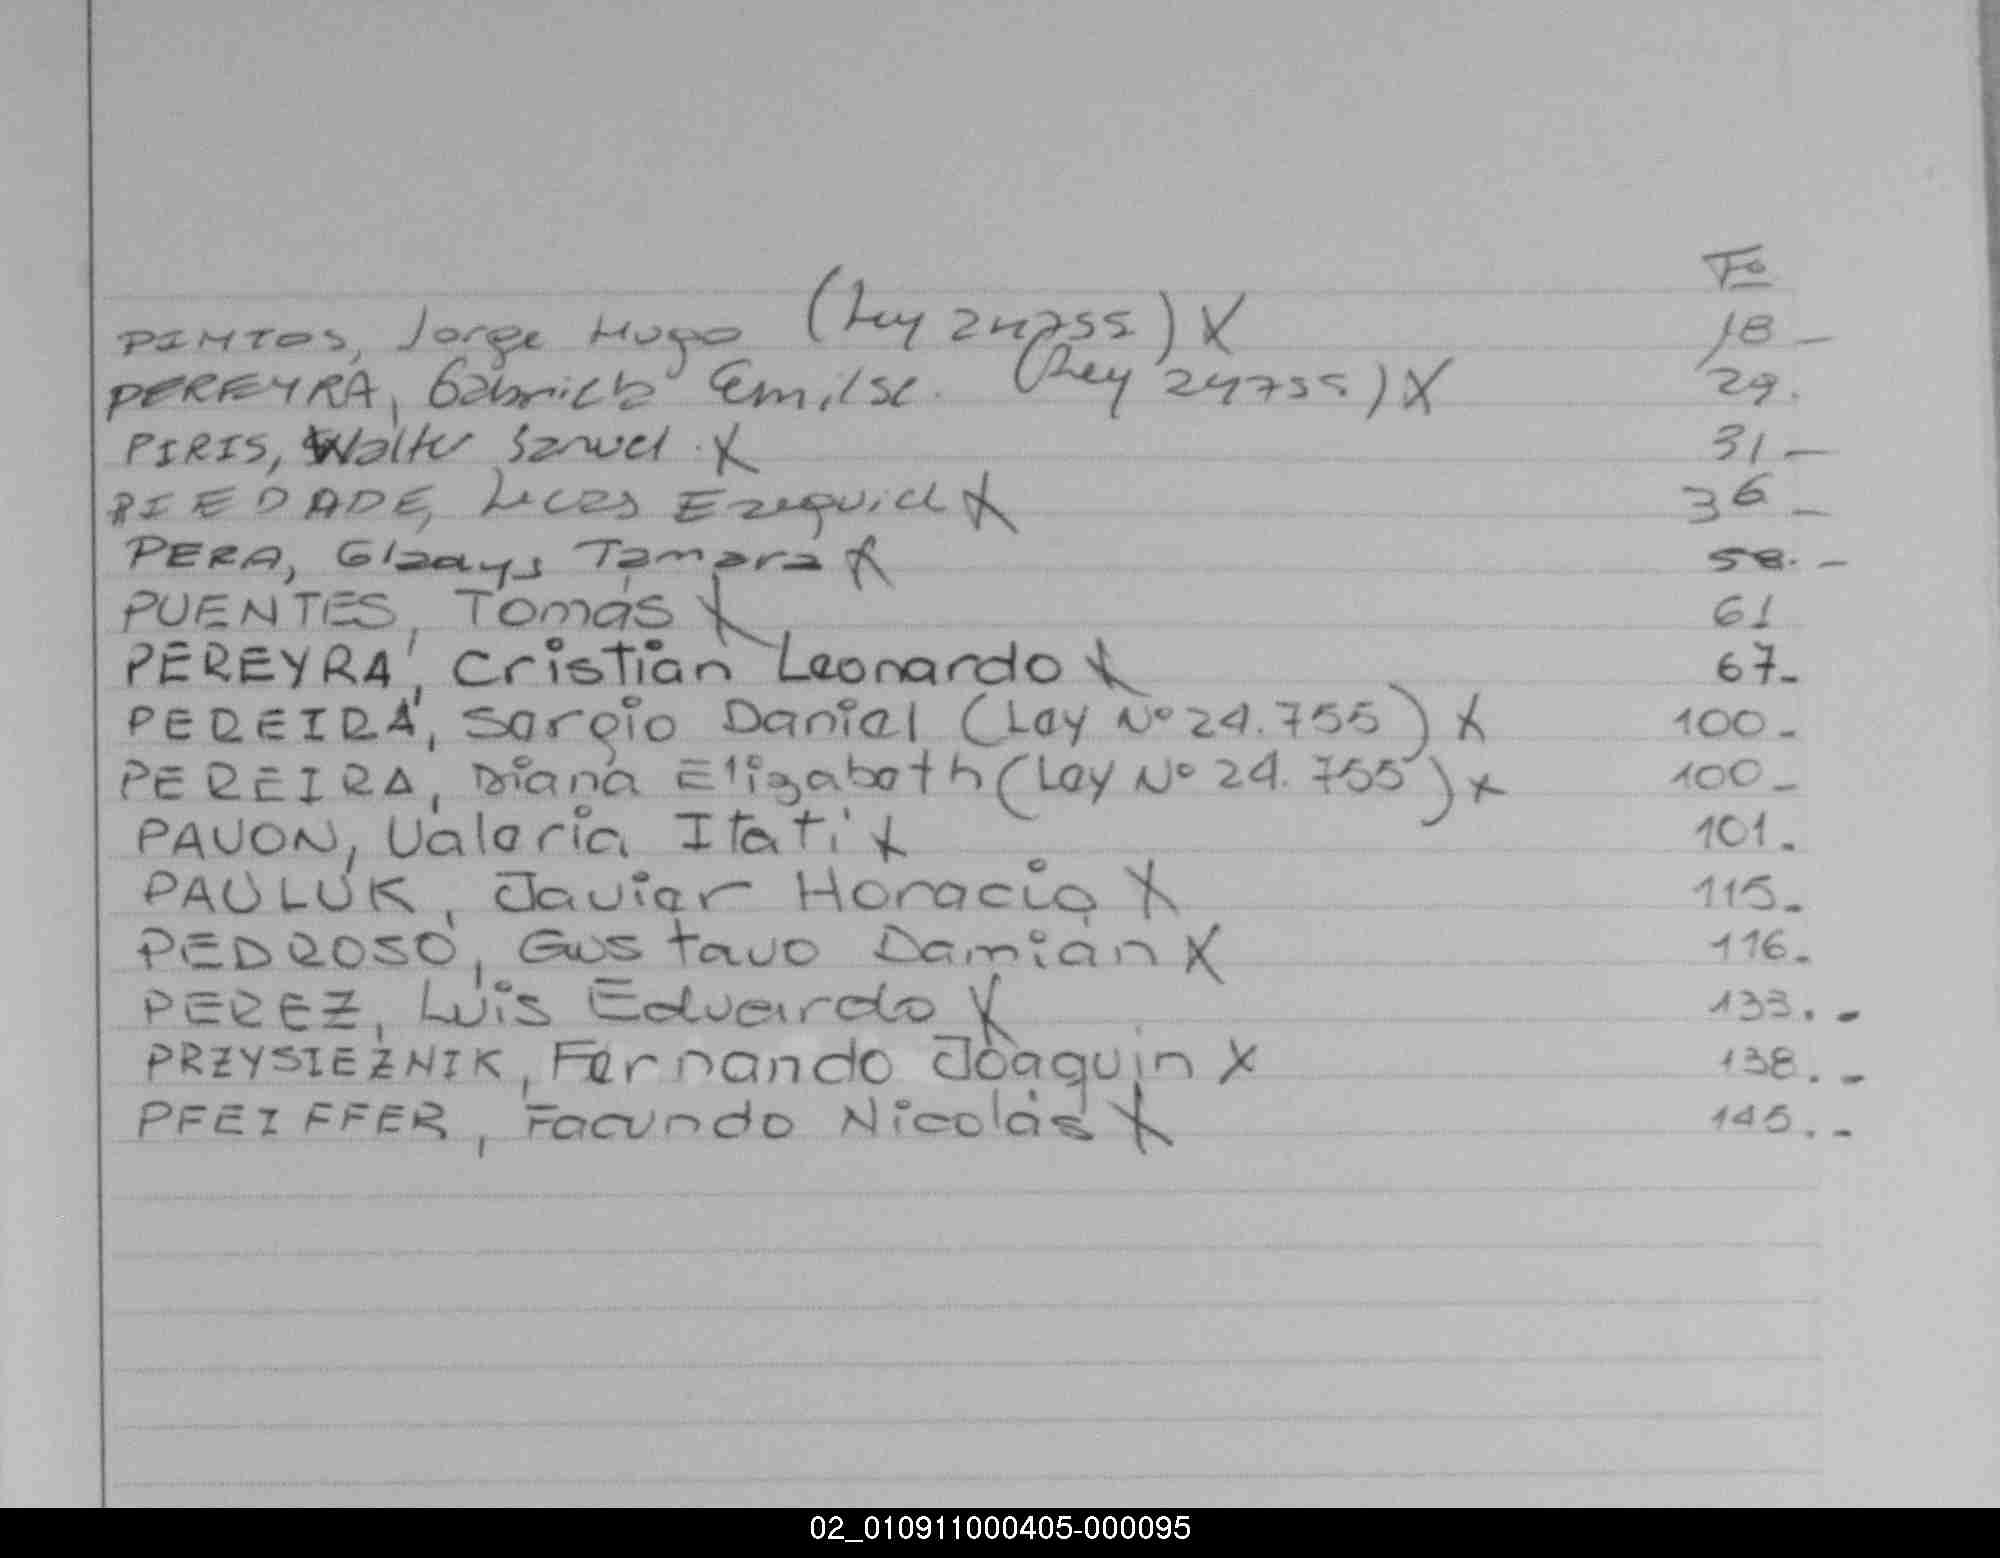 Fo
PINTOS, Jorge Hugo (Ley 24755) X 18 -
PEREYRA, Gabriela Emilse. (Ley 24755) X 29.
PIRIS, Walter Samuel. X 31 -
PIEDADE, Lucas Ezequiel X 36 -
PERA, Gladys Tamara X 58. -
PUENTES, Tomás X 61
PEREYRA, Cristian Leonardo X 67-
PEREIRA, Sergio Daniel (Ley Nº 24.755) X 100-
PEREIRA, Diana Elizabeth (Ley Nº 24.755) x 100-
PAVON, Valeria Itati x 101.
PAULUK, Javier Horacio X 115-
PEDROSO, Gustavo Damián X 116.
PEREZ, Luis Eduardo X 133. -
PRZYSIEZNIK, Fernando Joaquin X 138. -
PFEIFFER, Facundo Nicolás X 145. -
02_010911000405-000095